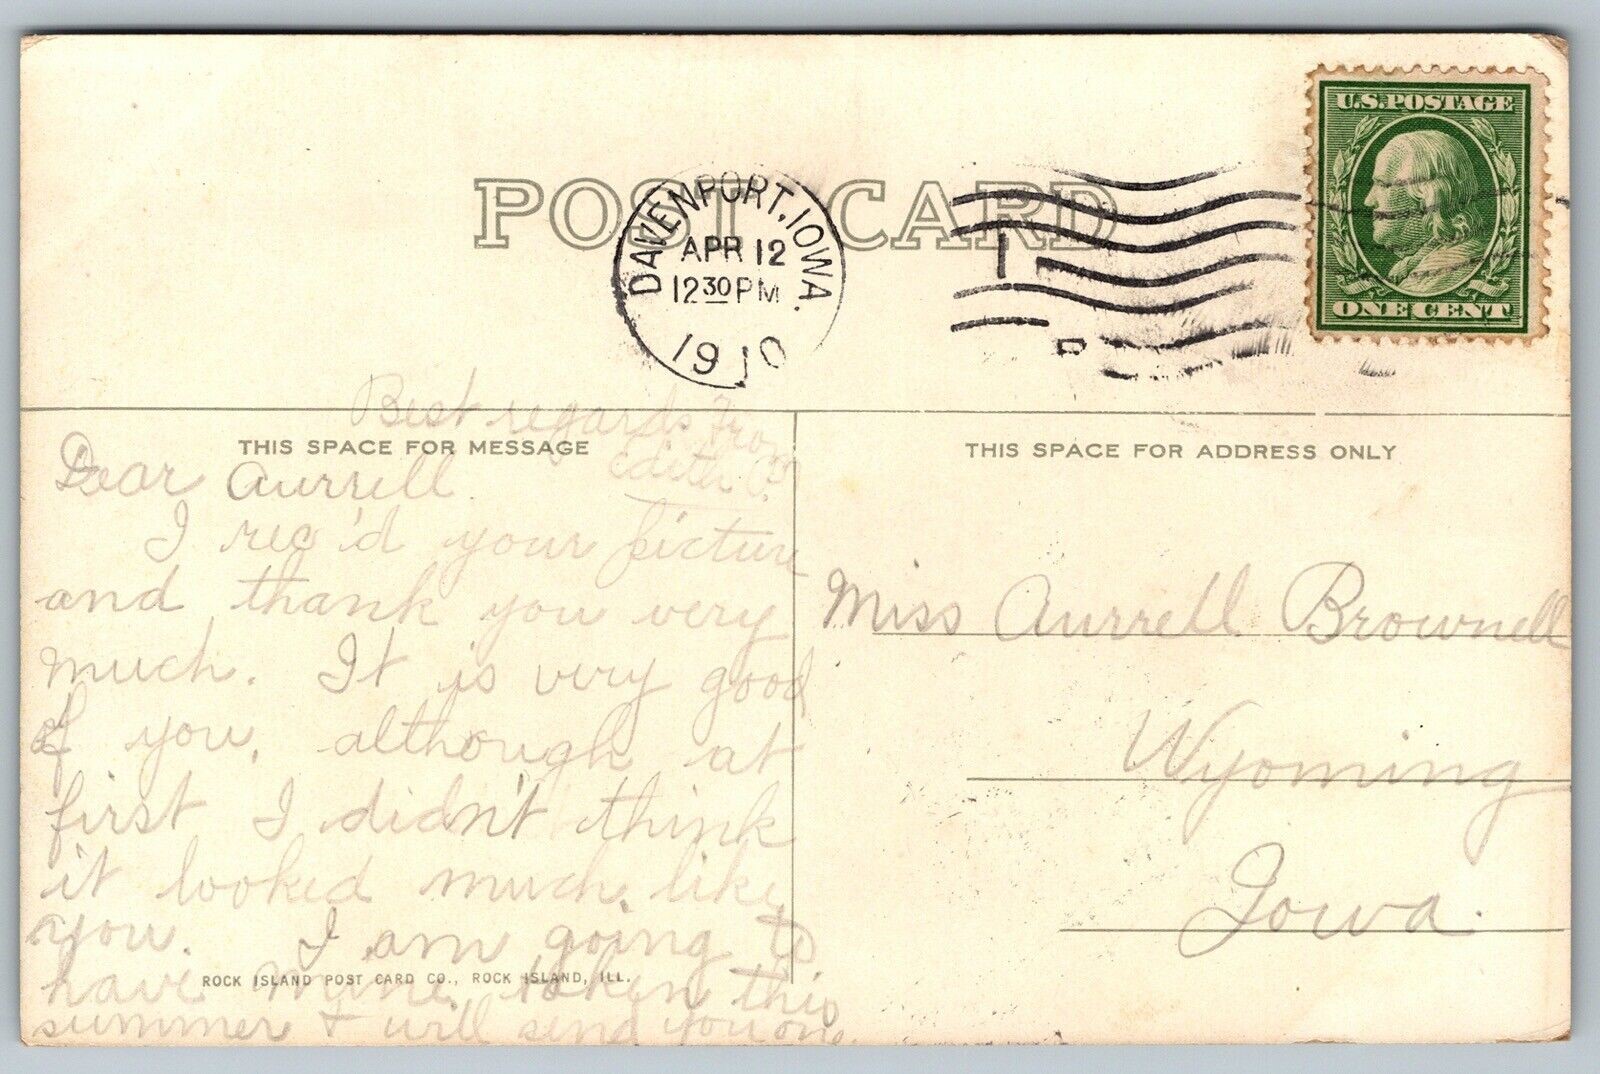 POST CARD
U.S. POSTAGE
ONE CENT
DAVENPORT, IOWA.
APR 12
12 30 PM
1910
1
D
Best regards From
Edith C.
THIS SPACE FOR MESSAGE
THIS SPACE FOR ADDRESS ONLY
Dear Aurrell.
I rec'd your picture
and thank you very
much. It is very good
of you, although at
first I didn't think
it looked much like
you. I am going to
have mine taken this
summer + will send you one.
ROCK ISLAND POST CARD CO., ROCK ISLAND, ILL.
Miss Aurrell Brownell
Wyoming
Iowa.